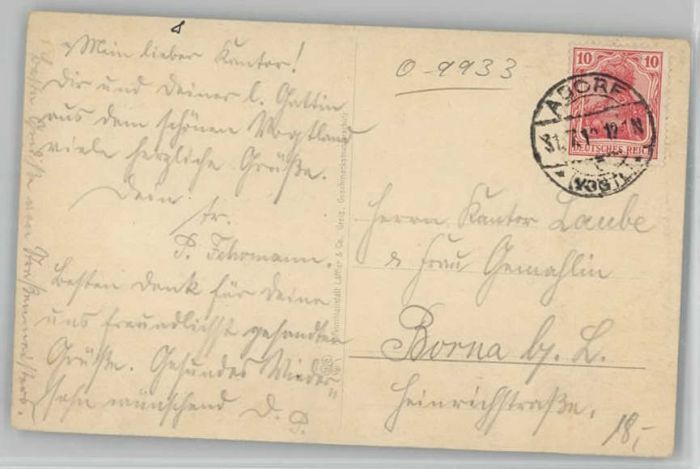 Mein lieber Kantor!
Dir und deiner l. Gattin
aus dem schönen Vogtland
viele herzliche Grüße.
Dein
fr.
P.
Besten Dank für Deine
uns freundlichst gesandten
Grüße. Gesundes Wieder=
sehn wünschend D. P.
0-9933
10 10
DEUTSCHES REICH
ADORF
(VOGTL.)
Herrn Kantor Laube
& Frau Gemahlin
Borna b. L.
Heinrichstraße.
18,-